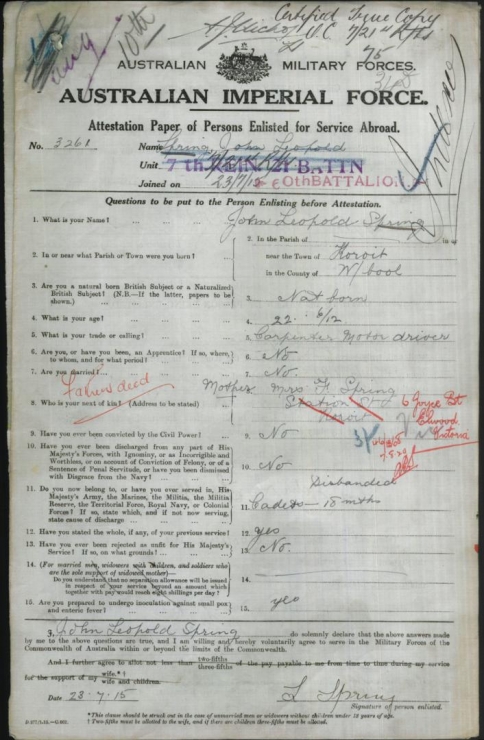 Certified True Copy
10th
AUSTRALIAN MILITARY FORCES.
AUSTRALIAN IMPERIAL FORCE.
Attestation Paper of Persons Enlisted for Service Abroad.
No. 3261 Name Spring, John Leopold
Unit 7th REIN. 21 BATTN
Joined on 23/7/15 60th BATTALION
Questions to be put to the Person Enlisting before Attestation.
1. What is your Name? 1. John Leopold Spring
2. In or near what Parish or Town were you born? 2. In the Parish of in or
near the Town of Koroit
in the County of W/bool
3. Are you a natural born British Subject or a Naturalized British Subject? (N.B.—If the latter, papers to be shown.) 3. Nat born
4. What is your age? 4. 22 6/12
5. What is your trade or calling? 5. Carpenter Motor driver
6. Are you, or have you been, an Apprentice? If so, where, to whom, and for what period? 6. No
7. Are you married? 7. No.
Father dead
8. Who is your next of kin? (Address to be stated) Mother Mrs F. Spring
Station St
Koroit
6 Joyce St
Elwood
Victoria
9. Have you ever been convicted by the Civil Power? 9. No
10. Have you ever been discharged from any part of His Majesty's Forces, with Ignominy, or as Incorrigible and Worthless, or on account of Conviction of Felony, or of a Sentence of Penal Servitude, or have you been dismissed with Disgrace from the Navy? 10. No
Disbanded
11. Do you now belong to, or have you ever served in, His Majesty's Army, the Marines, the Militia, the Militia Reserve, the Territorial Force, Royal Navy, or Colonial Forces? If so, state which, and if not now serving, state cause of discharge 11. Cadets — 18 mths
12. Have you stated the whole, if any, of your previous service? 12. yes
13. Have you ever been rejected as unfit for His Majesty's Service? If so, on what grounds? 13. No.
14. (For married men, widowers with children, and soldiers who are the sole support of widowed mother)—
Do you understand that no separation allowance will be issued in respect of your service beyond an amount which together with pay would reach eight shillings per day? 14.
15. Are you prepared to undergo inoculation against small pox and enteric fever? 15. yes
I, John Leopold Spring do solemnly declare that the above answers made by me to the above questions are true, and I am willing and hereby voluntarily agree to serve in the Military Forces of the Commonwealth of Australia within or beyond the limits of the Commonwealth.
And I further agree to allot not less than two-fifths three-fifths of the pay payable to me from time to time during my service
for the support of my wife.* wife and children.
Date 23.7.15 L Spring
Signature of person enlisted.
* This clause should be struck out in the case of unmarried men or widowers without children under 18 years of age.
† Two-fifths must be allotted to the wife, and if there are children three-fifths must be allotted.